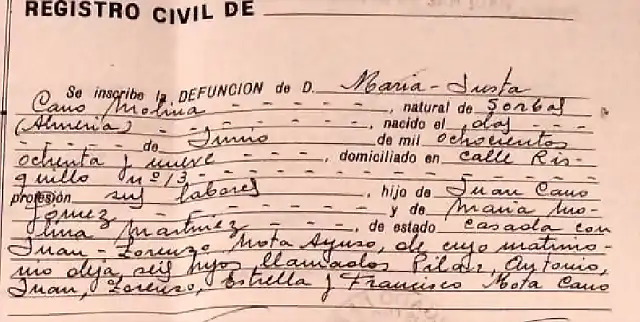 REGISTRO CIVIL DE
Se inscribe la DEFUNCION de D. Maria-Justa
Cano Molina - - - - - - , natural de Sorbas
(Almeria) - - - - - - - , nacido el dos - - -
- - - - - de Junio de mil ochocientos
ochenta y nueve - - - - , domiciliado en calle Ris-
quillo nº 13 - - - - - - -
profesión sus labores , hijo de Juan Cano
Gómez - - - - - - - y de Maria Mo-
lina Martinez - - - - - , de estado casada con
Juan-Lorenzo Mota Ayuso, de cuyo matrimo-
nio deja seis hijos llamados Pilar, Antonio,
Juan, Lorenzo, Estrella y Francisco Mota Cano